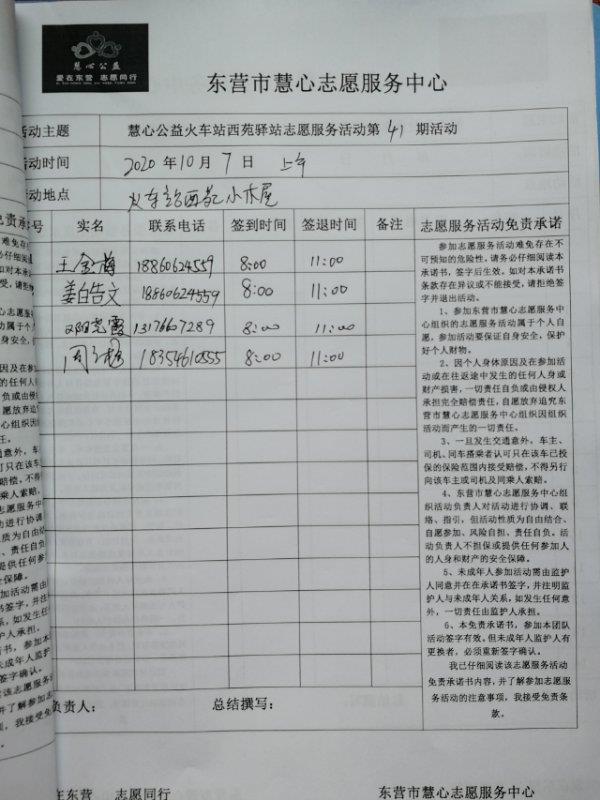 慧心公益
爱在东营 志愿同行
东营市慧心志愿服务中心
活动主题 慧心公益火车站西苑驿站志愿服务活动第41期活动
活动时间 2020年10月7日 上午
活动地点 火车站西苑小木屋
实名 联系电话 签到时间 签退时间 备注 志愿服务活动免责承诺
王金梅 18860624559 8:00 11:00
姜白告文 18860624559 8:00 11:00
13176607289 8:00 11:00
18354610855 8:00 11:00
参加志愿服务活动难免存在不
可预知的危险性,请务必仔细阅读本
承诺书,签字后生效。如对本承诺书
条款存在异议或不能接受,请拒绝签
字并退出活动。
1、参加东营市慧心志愿服务中
心组织的志愿服务活动属于个人自
愿,参加活动要保证自身安全,保护
好个人财物。
2、因个人身体原因及在参加活
动或在往返途中发生的任何人身或
财产损害,一切责任自负或由侵权人
承担完全赔偿责任,自愿放弃追究东
营市慧心志愿服务中心组织因组织
活动而产生的一切责任。
3、一旦发生交通意外,车主、
司机、同车搭乘者认可只在该车已投
保的保险范围内接受赔偿,不得另行
向该车主或司机及同乘人索赔。
4、东营市慧心志愿服务中心组
织活动负责人对活动进行协调、联
络、指引,但活动性质为自由结合、
自愿参加、风险自担、责任自负。活
动负责人不担保或提供任何参加人
的人身和财产的安全保障。
5、未成年人参加活动需由监护
人同意并在在承诺书签字,并注明监
护人与未成年人关系,如发生任何意
外,一切责任由监护人承担。
6、本免责承诺书,参加本团队
活动签字有效。但未成年人监护人有
更换者,必须重新签字确认。
我已仔细阅读该志愿服务活动
免责承诺书内容,并了解参加志愿服
务活动的注意事项,我接受免责条
款。
负责人: 总结撰写:
在东营 志愿同行 东营市慧心志愿服务中心